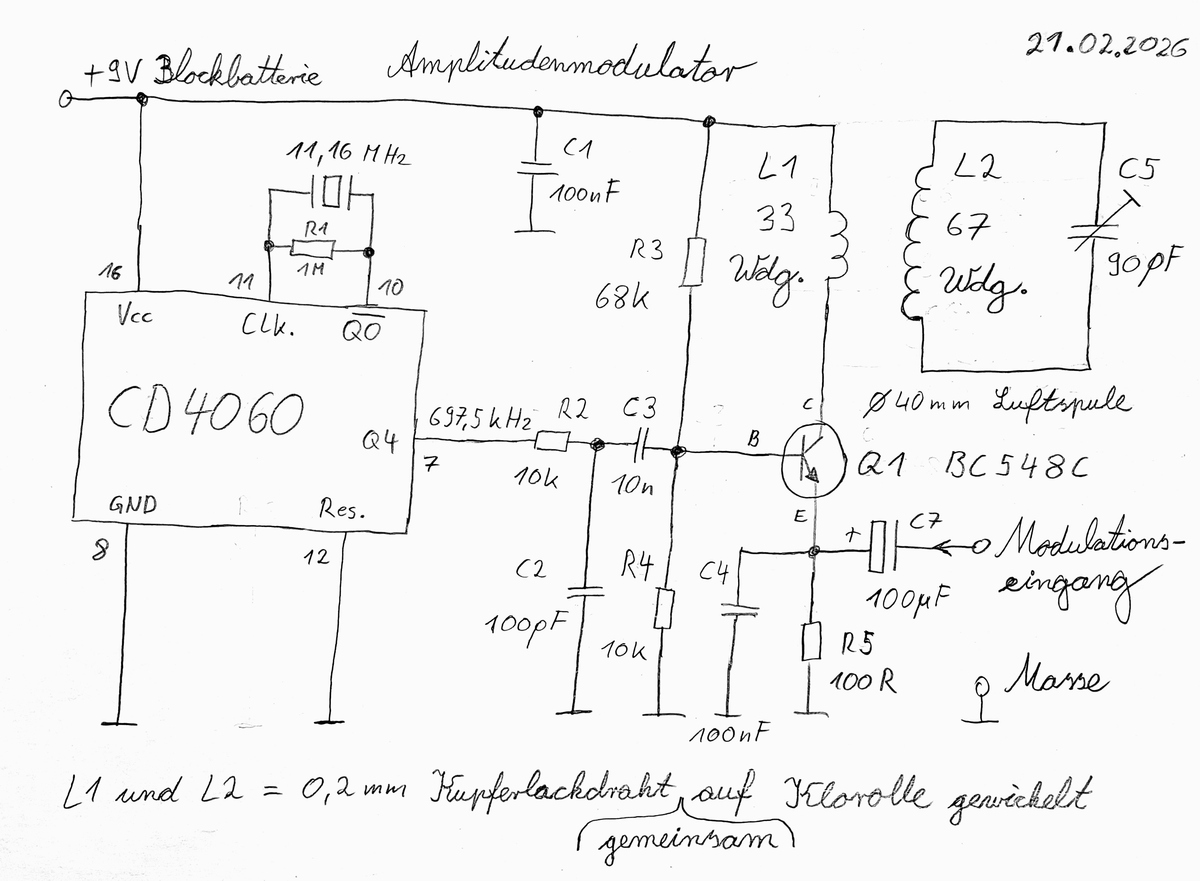 21.02.2026
+9V Blockbatterie Amplitudenmodulator
11,16 MHz
R1
1M
C1
100nF
L1
33
Wdg.
L2
67
Wdg.
C5
90pF
R3
68k
16
11
10
Vcc
CLK.
Q0
CD4060
Q4
697,5kHz
7
R2
10k
C3
10n
B
C
E
Ø40mm Luftspule
Q1 BC548C
GND
Res.
8
12
C2
100pF
R4
10k
C4
100nF
+
C7
100µF
Modulations-
eingang
R5
100R
Masse
L1 und L2 = 0,2mm Kupferlackdraht auf Klorolle gewickelt
gemeinsam